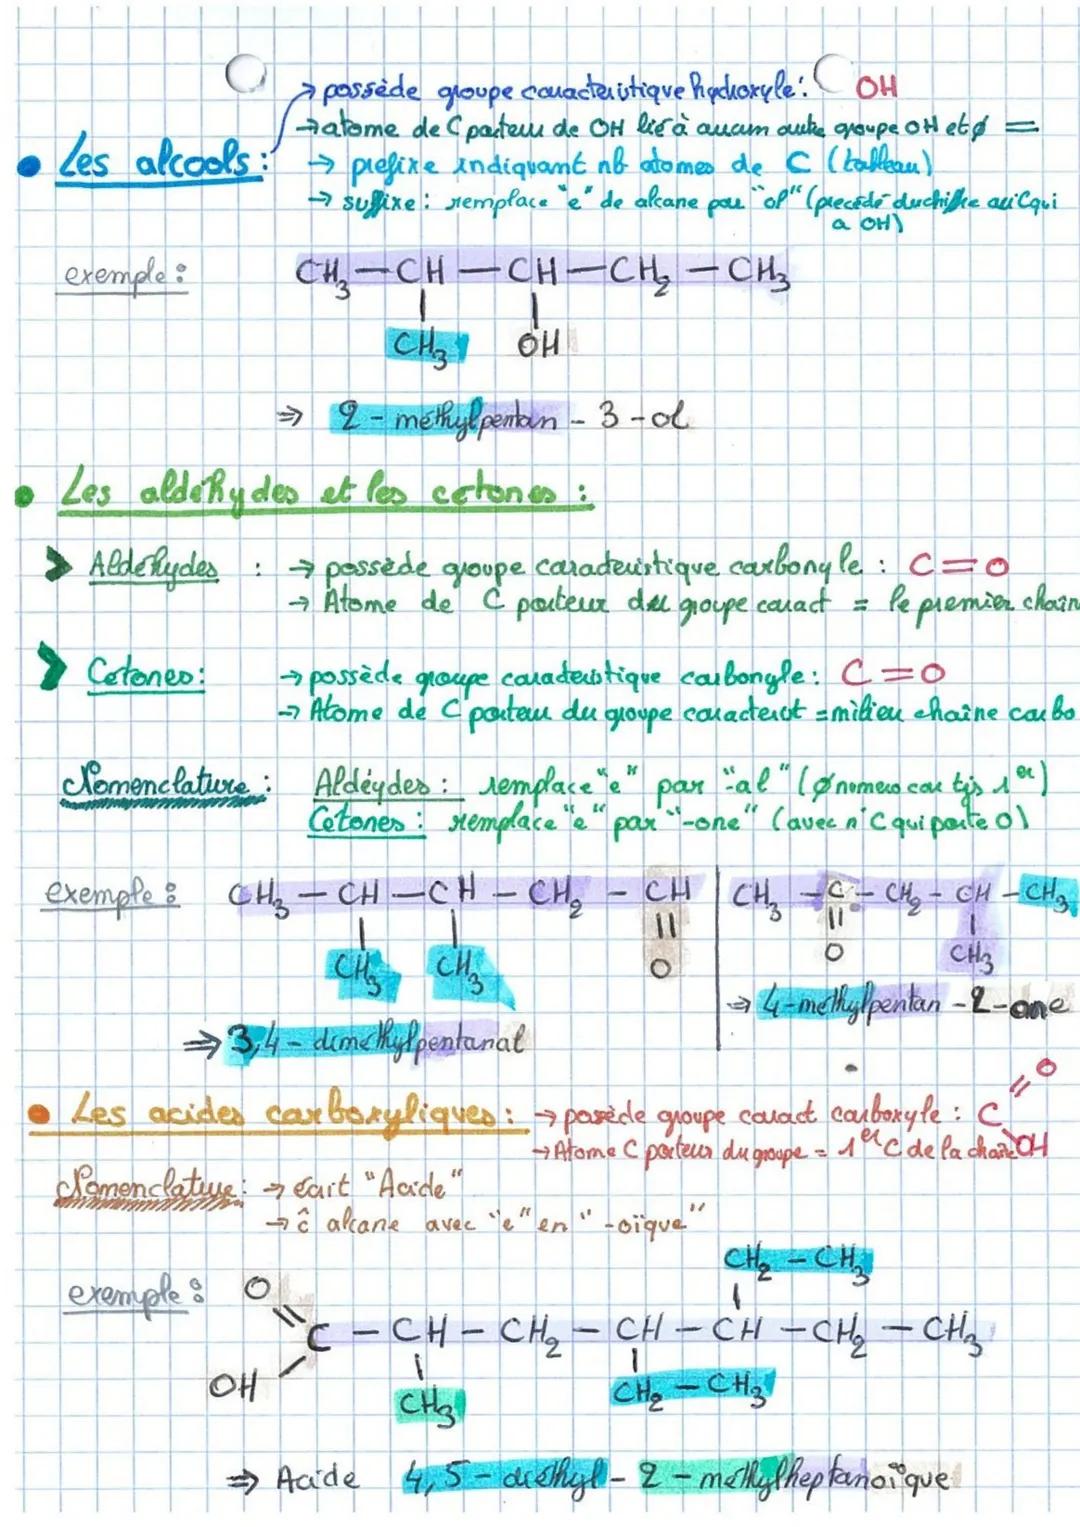 → possède groupe caractéristique hydroxyle : OH
→ atome de C porteur de OH lié à aucun autre groupe OH et ∅ =
• Les alcools :
→ préfixe indiquant nb atomes de C (tableau)
→ suffixe : remplace "e" de alcane par "ol" (précédé du chiffre au C qui
a OH)
exemple :
CH₃ — CH — CH — CH₂ — CH₃
CH₃ OH
⇒ 2 - méthylpentan - 3 - ol
• Les aldéhydes et les cetones :
> Aldéhydes : → possède groupe caractéristique carbonyle : C = O
→ Atome de C porteur du groupe caract = le premier chaîn
> Cetones : → possède groupe caractéristique carbonyle : C = O
→ Atome de C porteur du groupe caracterist = milieu chaîne carbo
Nomenclature : Aldéydes : remplace "e" par "-al" (∅ numero car tjs 1er)
Cetones : remplace "e" par "-one" (avec n° C qui porte O)
exemple : CH₃ — CH — CH — CH₂ — CH
CH₃ CH₃ O
⇒ 3,4 - dimethylpentanal
CH₃ — C — CH₂ — CH — CH₃
O CH₃
→ 4-méthylpentan - 2 - one
• Les acides carboxyliques : → possède groupe caract carboxyle : C = O OH
→ Atome C porteur du groupe = 1er C de la chaîne
Nomenclature : → écrit "Acide"
→ ĉ alcane avec "e" en "-oïque"
exemple :
CH₂ — CH₃
O
C — CH — CH₂ — CH — CH — CH₂ — CH₃
OH CH₃ CH₂ — CH₃
⇒ Acide 4,5 - diéthyl - 2 - méthylheptanoïque